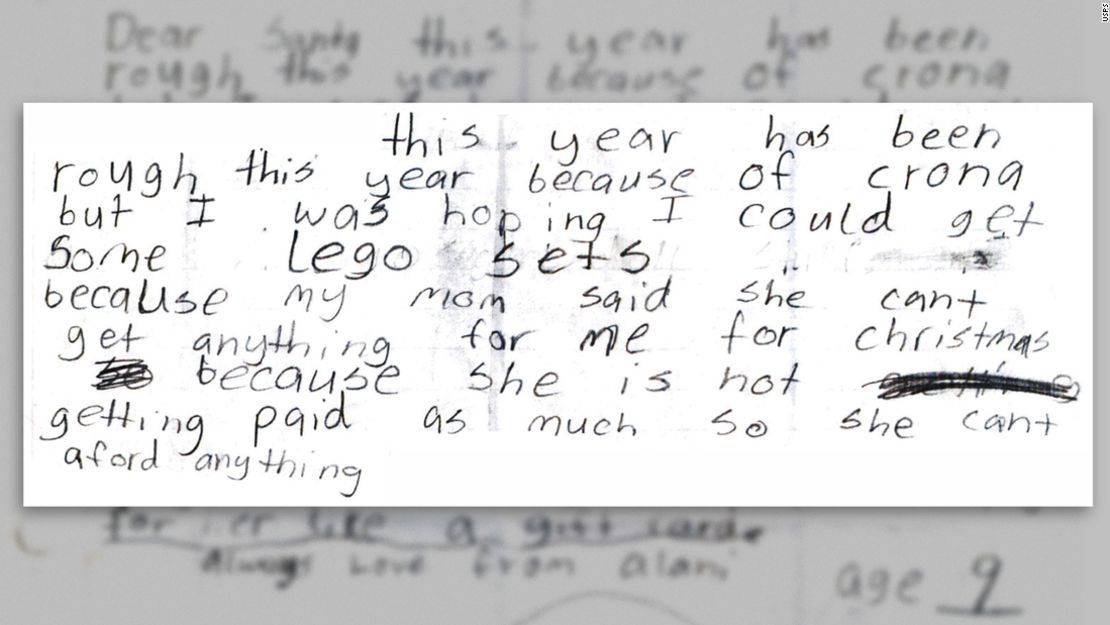 Dear Santa this year has been
rough this year because of crona
this year has been
rough this year because of crona
but I was hoping I could get
Some Lego sets
because my mom said she cant
get anything for me for christmas
because she is not
getting paid as much so she cant
aford anything
for her like a gift card.
Always Love from alani
age 9
USPS